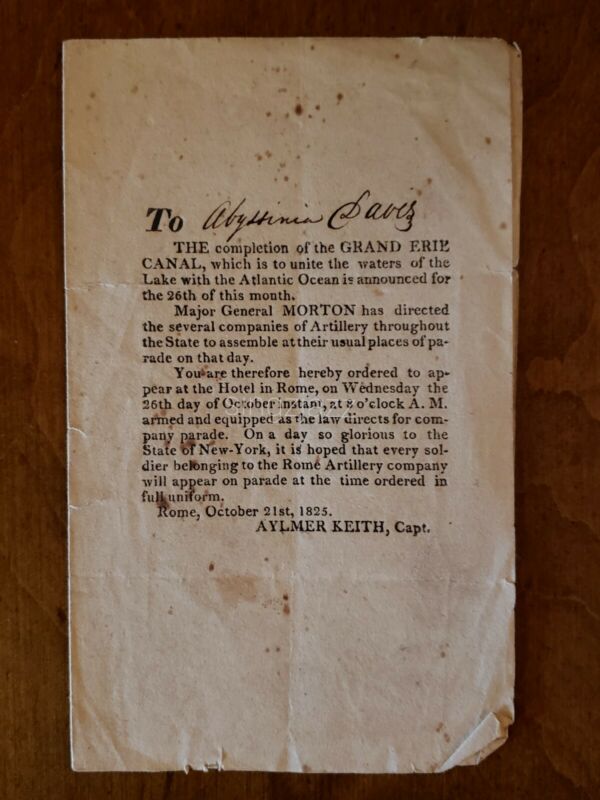 To Abyssinia Davis
THE completion of the GRAND ERIE
CANAL, which is to unite the waters of the
Lake with the Atlantic Ocean is announced for
the 26th of this month.
Major General MORTON has directed
the several companies of Artillery throughout
the State to assemble at their usual places of pa-
rade on that day.
You are therefore hereby ordered to ap-
pear at the Hotel in Rome, on Wednesday the
26th day of October instant, at 8 o'clock A. M.
armed and equipped as the law directs for com-
pany parade. On a day so glorious to the
State of New-York, it is hoped that every sol-
dier belonging to the Rome Artillery company
will appear on parade at the time ordered in
full uniform.
Rome, October 21st, 1825.
AYLMER KEITH, Capt.